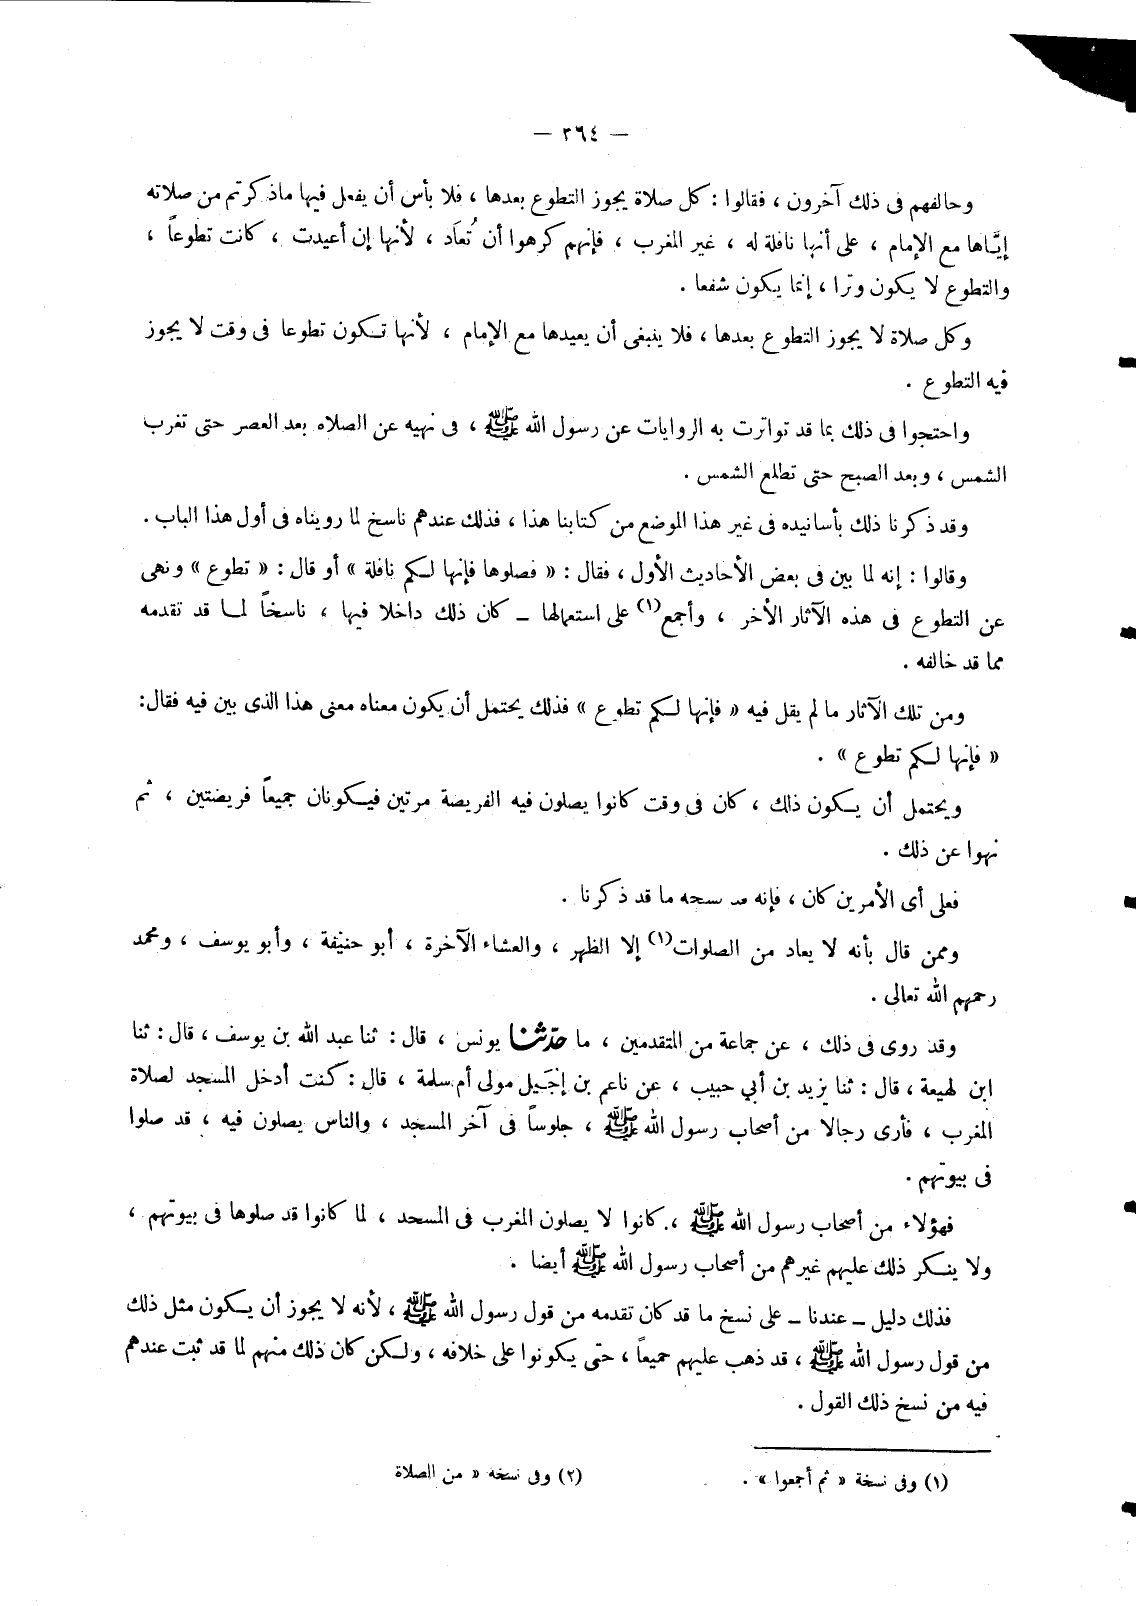 — ٣٦٤ —
وحالفهم فى ذلك آخرون ، فقالوا : كل صلاة يجوز التطوع بعدها ، فلا بأس أن يفعل فيها ماذكرتم من صلاته
إيَّاها مع الإمام ، على أنها نافلة له ، غير المغرب ، فإنهم كرهوا أن تُعاَد ، لأنها إن أعيدت ، كانت تطوعاً ،
والتطوع لا يكون وترا ، إنما يكون شفعا .
وكل صلاة لا يجوز التطوع بعدها ، فلا ينبغى أن يعيدها مع الإمام ، لأنها تكون تطوعا فى وقت لا يجوز
فيه التطوع .
واحتجوا فى ذلك بما قد تواترت به الروايات عن رسول الله ﷺ ، فى نهيه عن الصلاه بعد العصر حتى تغرب
الشمس ، وبعد الصبح حتى تطلع الشمس .
وقد ذكرنا ذلك بأسانيده فى غير هذا الموضع من كتابنا هذا ، فذلك عندهم ناسخ لما رويناه فى أول هذا الباب .
وقالوا : إنه لما بين فى بعض الأحاديث الأول ، فقال : « فصلوها فإنها لكم نافلة » أو قال : « تطوع » ونهى
عن التطوع فى هذه الآثار الأخر ، وأجمع(١) على استعمالها ــ كان ذلك داخلا فيها ، ناسخاً لما قد تقدمه
مما قد خالفه .
ومن تلك الآثار ما لم يقل فيه « فإنها لكم تطوع » فذلك يحتمل أن يكون معناه معنى هذا الذى بين فيه فقال:
« فإنها لكم تطوع » .
ويحتمل أن يكون ذلك ، كان فى وقت كانوا يصلون فيه الفريضة مرتين فيكونان جميعاً فريضتين ، ثم
نهوا عن ذلك .
فعلى أى الأمرين كان ، فإنه ما قد ذكرنا .
وممن قال بأنه لا يعاد من الصلوات(١) إلا الظهر ، والعشاء الآخرة ، أبو حنيفة ، وأبو يوسف ، ومحمد
رحمهم الله تعالى .
وقد روى فى ذلك ، عن جماعة من المتقدمين ، ما حدّثنا يونس ، قال : ثنا عبد الله بن يوسف ، قال : ثنا
ابن لهيعة ، قال : ثنا يزيد بن أبي حبيب ، عن ناعم بن إجَيل مولى أم سلمة ، قال : كنت أدخل المسجد لصلاة
المغرب ، فأرى رجالا من أصحاب رسول الله ﷺ ، جلوساً فى آخر المسجد ، والناس يصلون فيه ، قد صلوا
فى بيوتهم .
فهؤلاء من أصحاب رسول الله ﷺ ، كانوا لا يصلون المغرب فى المسجد ، لما كانوا قد صلوها فى بيوتهم ،
ولا ينكر ذلك عليهم غيرهم من أصحاب رسول الله ﷺ أيضا .
فذلك دليل ــ عندنا ــ على نسخ ما قد كان تقدمه من قول رسول الله ﷺ ، لأنه لا يجوز أن يكون مثل ذلك
من قول رسول الله ﷺ ، قد ذهب عليهم جميعاً ، حتى يكونوا على خلافه ، ولكن كان ذلك منهم لما قد ثبت عندهم
فيه من نسخ ذلك القول .
(١) وفى نسخة « ثم أجمعوا » . (٢) وفى نسخه « من الصلاة